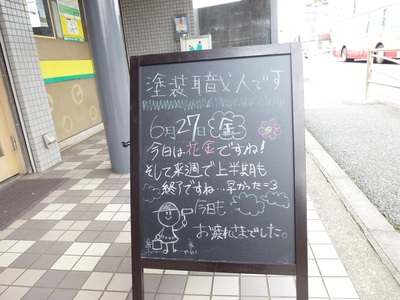 塗装職人です
6月27日 金
今日は花金ですね!
そして来週で上半期も
終了ですね…早かった=3
今日も
お疲れさまでした。